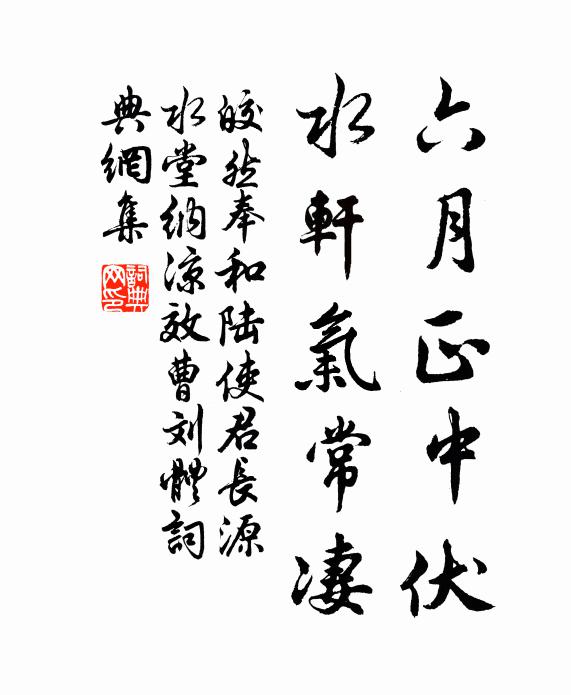 六月正中伏
水軒氣常凄
皎然奉和陆使君長源
水堂納涼效曹刘體詞
典網集
詞典网印